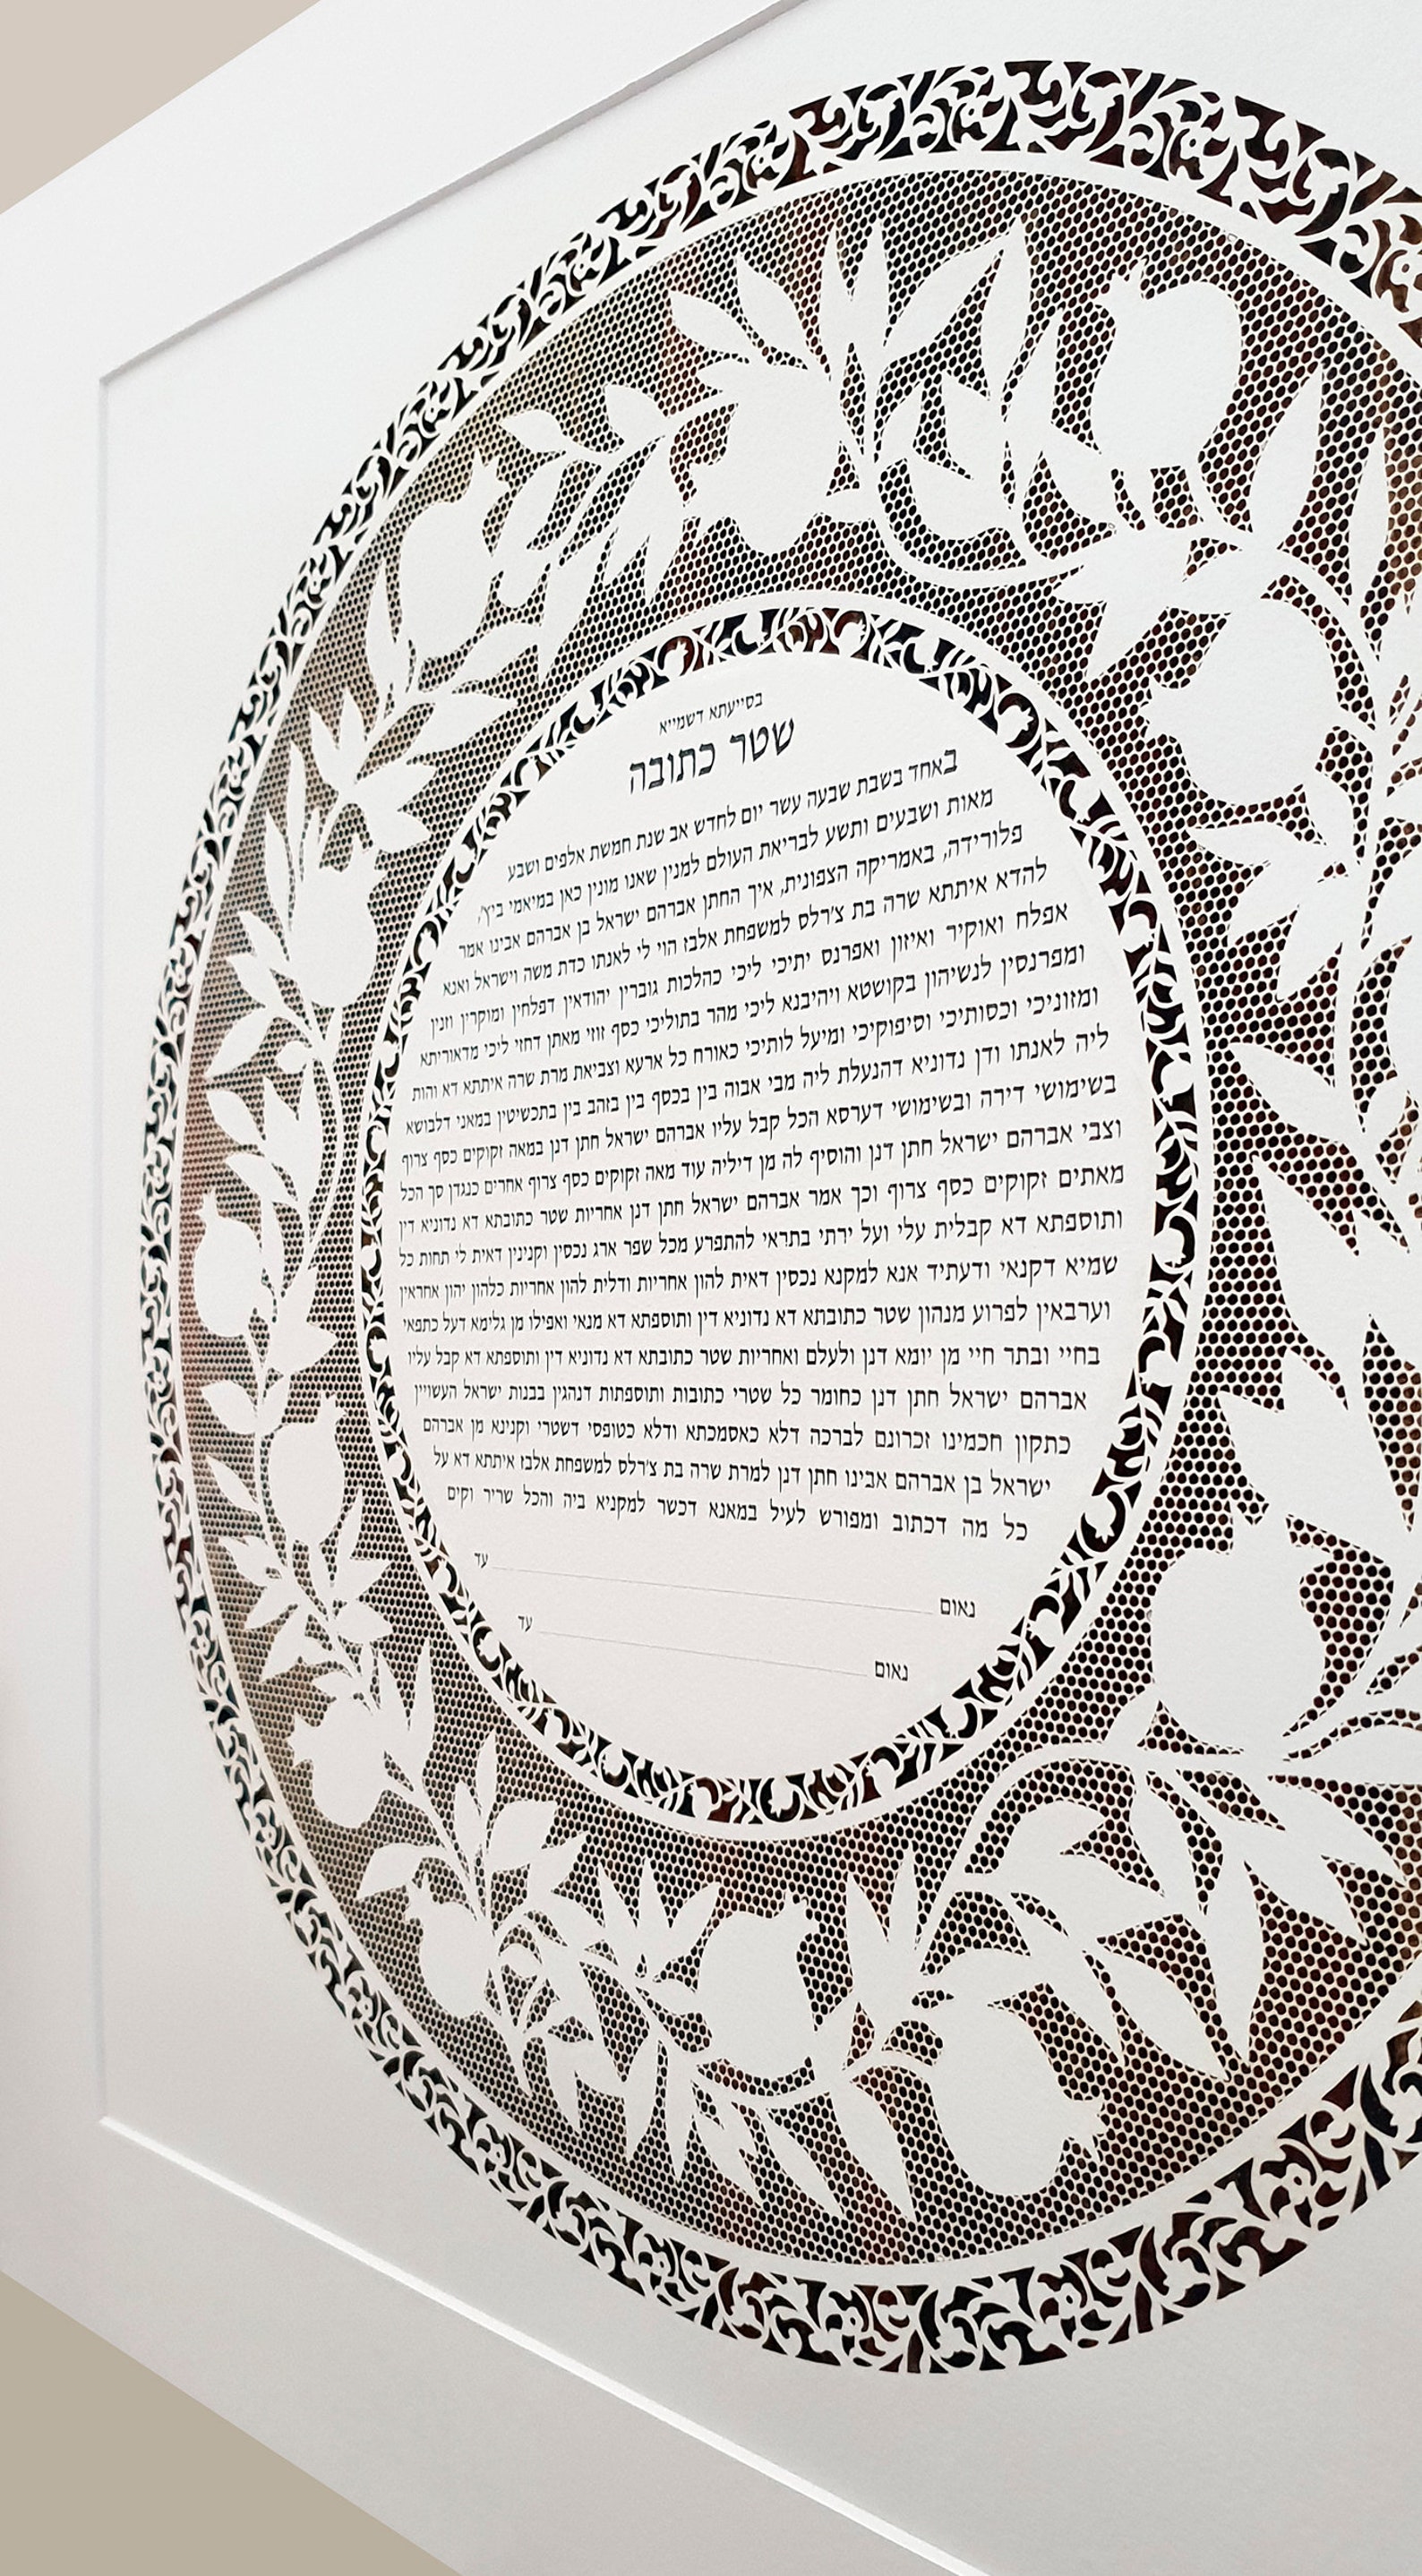 בסייעתא דשמייא
שטר כתובה
באחד בשבת שבעה עשר יום לחדש אב שנת חמשת אלפים ושבע
מאות ושבעים ותשע לבריאת העולם למנין שאנו מונין כאן במיאמי ביץ',
פלורידה, באמריקה הצפונית, איך החתן אברהם ישראל בן אברהם אבינו אמר
להדא איתתא שרה בת צ'רלס למשפחת אלבז הוי לי לאנתו כדת משה וישראל ואנא
אפלח ואוקיר ואיזון ואפרנס יתיכי ליכי כהלכות גוברין יהודאין דפלחין ומוקרין וזנין
ומפרנסין לנשיהון בקושטא ויהיבנא ליכי מהר בתוליכי כסף זוזי מאתן דחזי ליכי מדאוריתא
ומזוניכי וכסותיכי וסיפוקיכי ומיעל לותיכי כאורח כל ארעא וצביאת מרת שרה איתתא דא והות
ליה לאנתו ודן נדוניא דהנעלת ליה מבי אבוה בין בכסף בין בזהב בין בתכשיטין במאני דלבושא
בשימושי דירה ובשימושי דערסא הכל קבל עליו אברהם ישראל חתן דנן במאה זקוקים כסף צרוף
וצבי אברהם ישראל חתן דנן והוסיף לה מן דיליה עוד מאה זקוקים כסף צרוף אחרים כנגדן סך הכל
מאתים זקוקים כסף צרוף וכך אמר אברהם ישראל חתן דנן אחריות שטר כתובתא דא נדוניא דין
ותוספתא דא קבלית עלי ועל ירתי בתראי להתפרע מכל שפר ארג נכסין וקנינין דאית לי תחות כל
שמיא דקנאי ודעתיד אנא למקנא נכסין דאית להון אחריות ודלית להון אחריות כלהון יהון אחראין
וערבאין לפרוע מנהון שטר כתובתא דא נדוניא דין ותוספתא דא מנאי ואפילו מן גלימא דעל כתפאי
בחיי ובתר חיי מן יומא דנן ולעלם ואחריות שטר כתובתא דא נדוניא דין ותוספתא דא קבל עליו
אברהם ישראל חתן דנן כחומר כל שטרי כתובות ותוספתות דנהגין בבנות ישראל העשויין
כתקון חכמינו זכרונם לברכה דלא כאסמכתא ודלא כטופסי דשטרי וקנינא מן אברהם
ישראל בן אברהם אבינו חתן דנן למרת שרה בת צ'רלס למשפחת אלבז איתתא דא על
כל מה דכתוב ומפורש לעיל במאנא דכשר למקניא ביה והכל שריר וקים
נאום ____________ עד
נאום ____________ עד